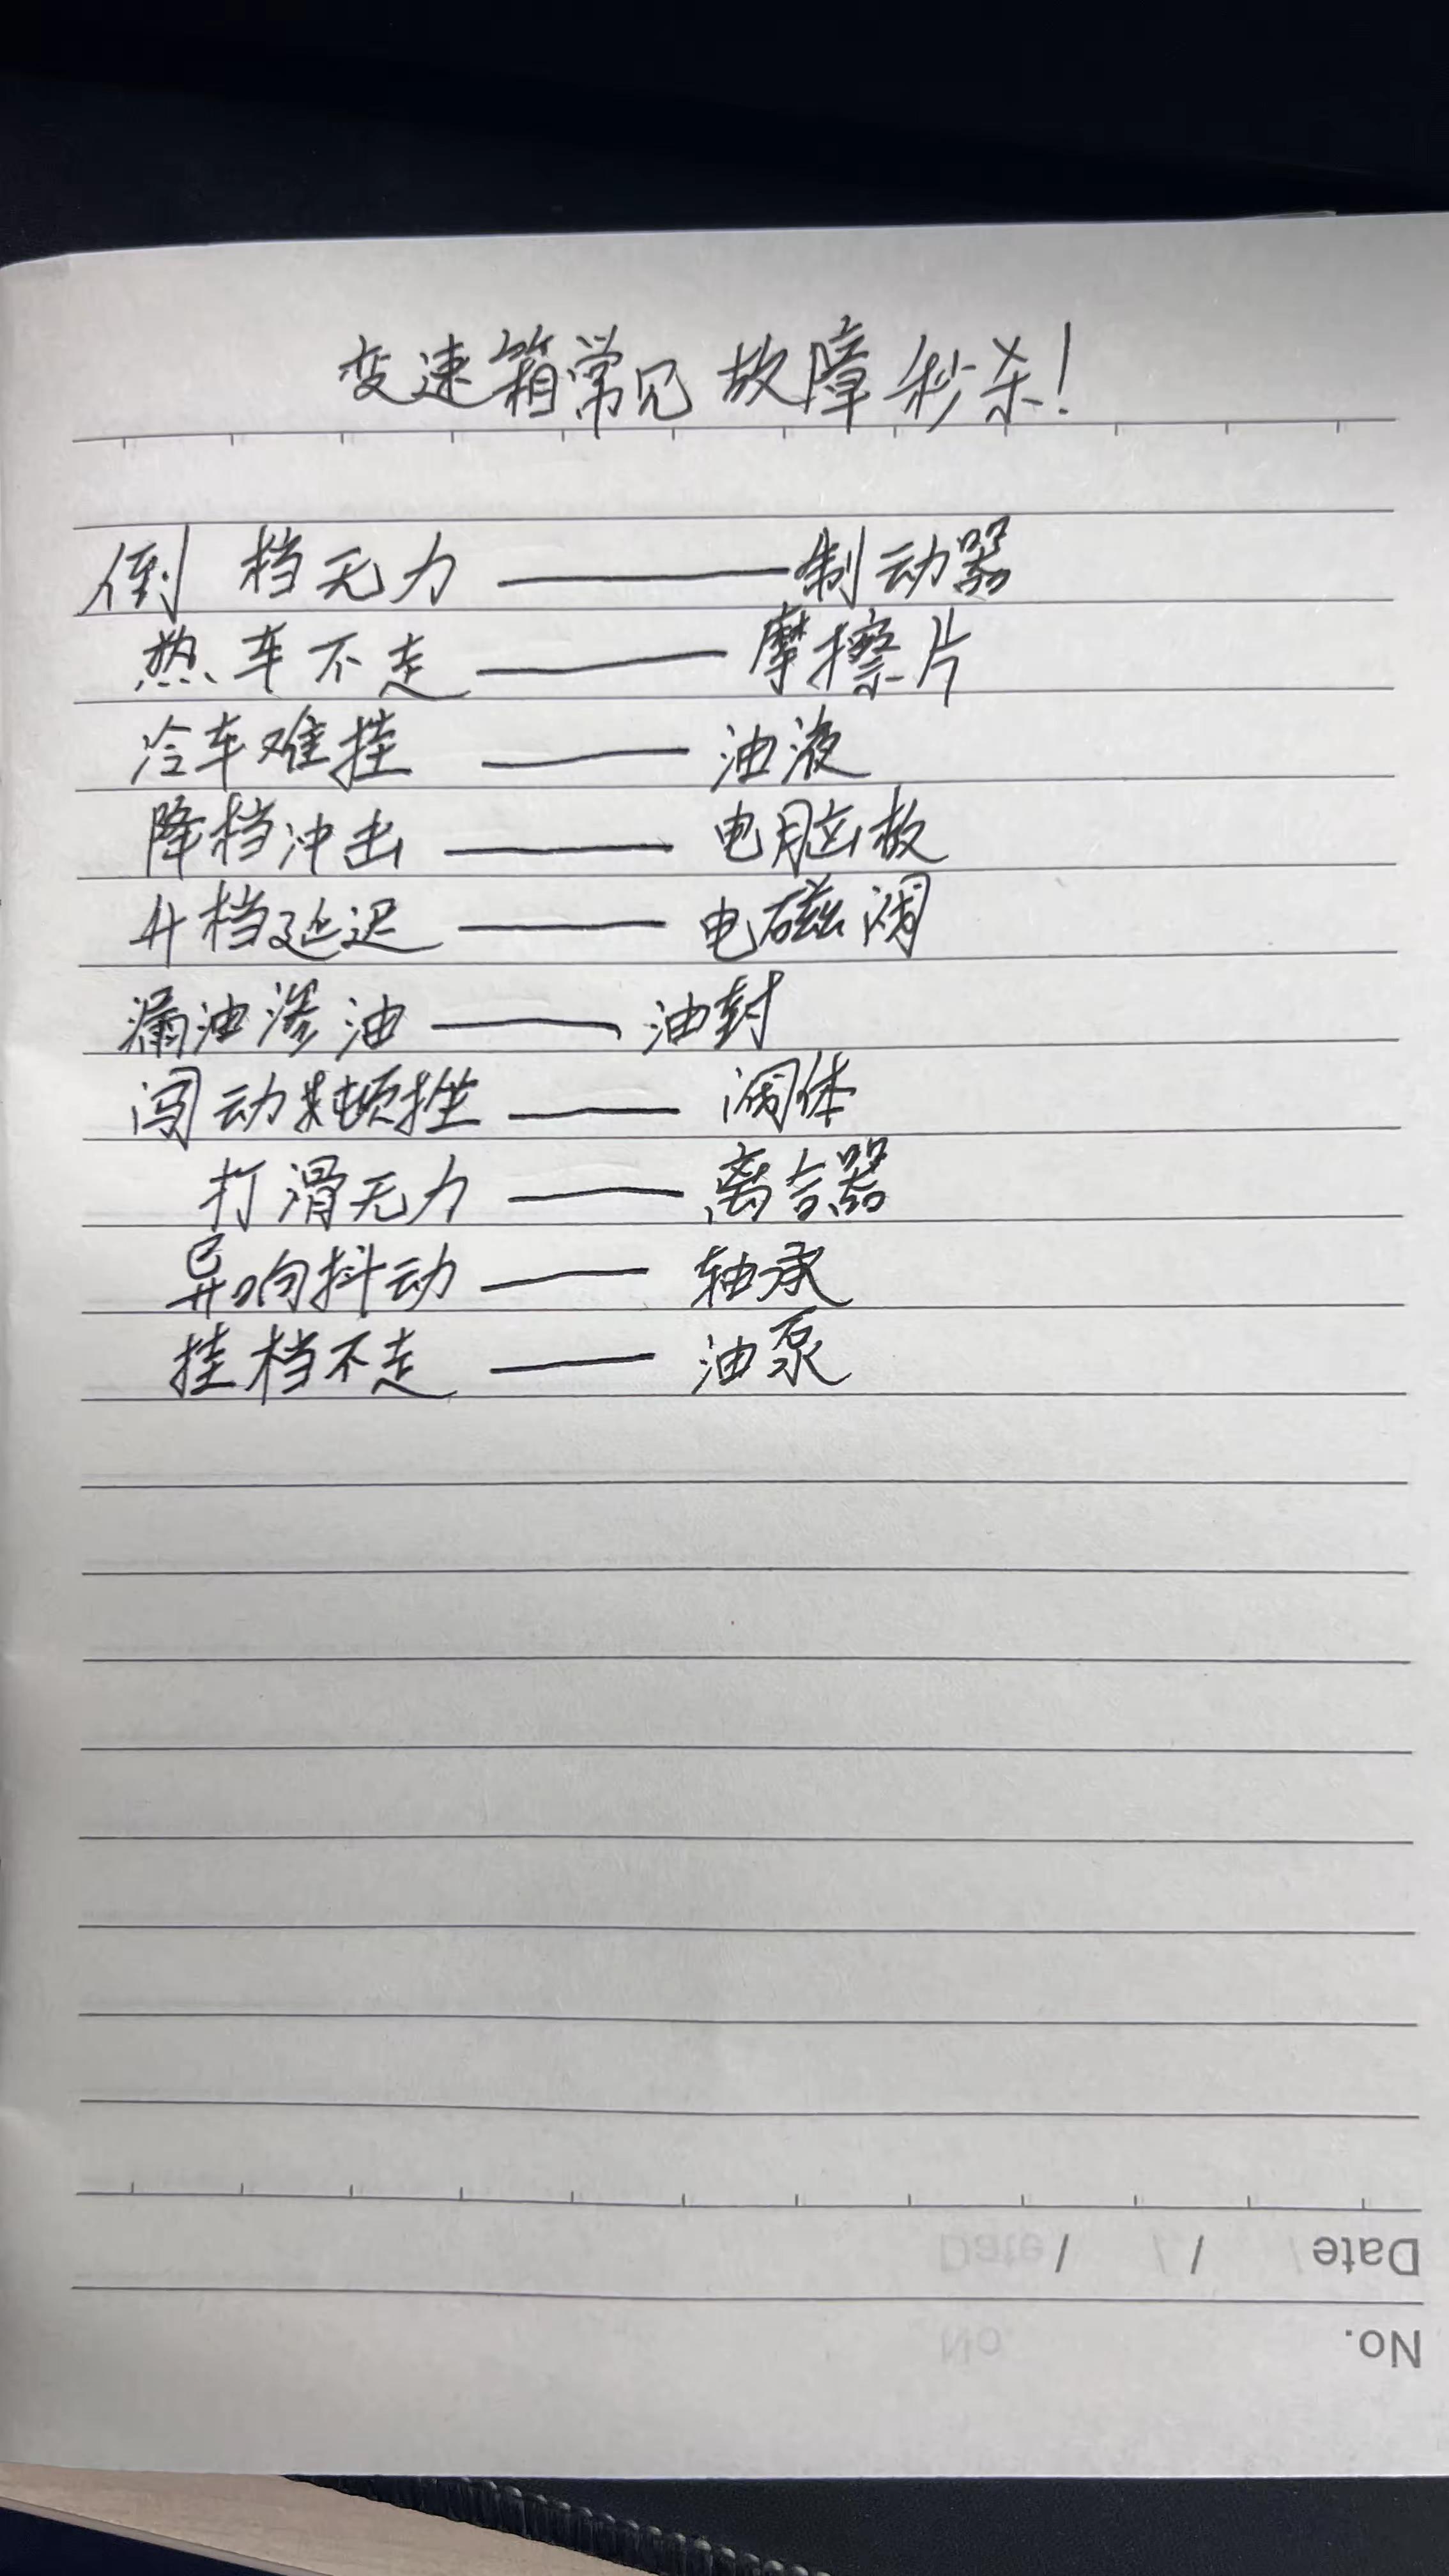 变速箱常见故障秒杀!
倒档无力——制动器
热车不走——摩擦片
冷车难挂——油液
降档冲击——电脑板
升档延迟——电磁阀
漏油渗油——油封
闯动顿挫——阀体
打滑无力——离合器
异响抖动——轴承
挂档不走——油泵
Date / /
No.